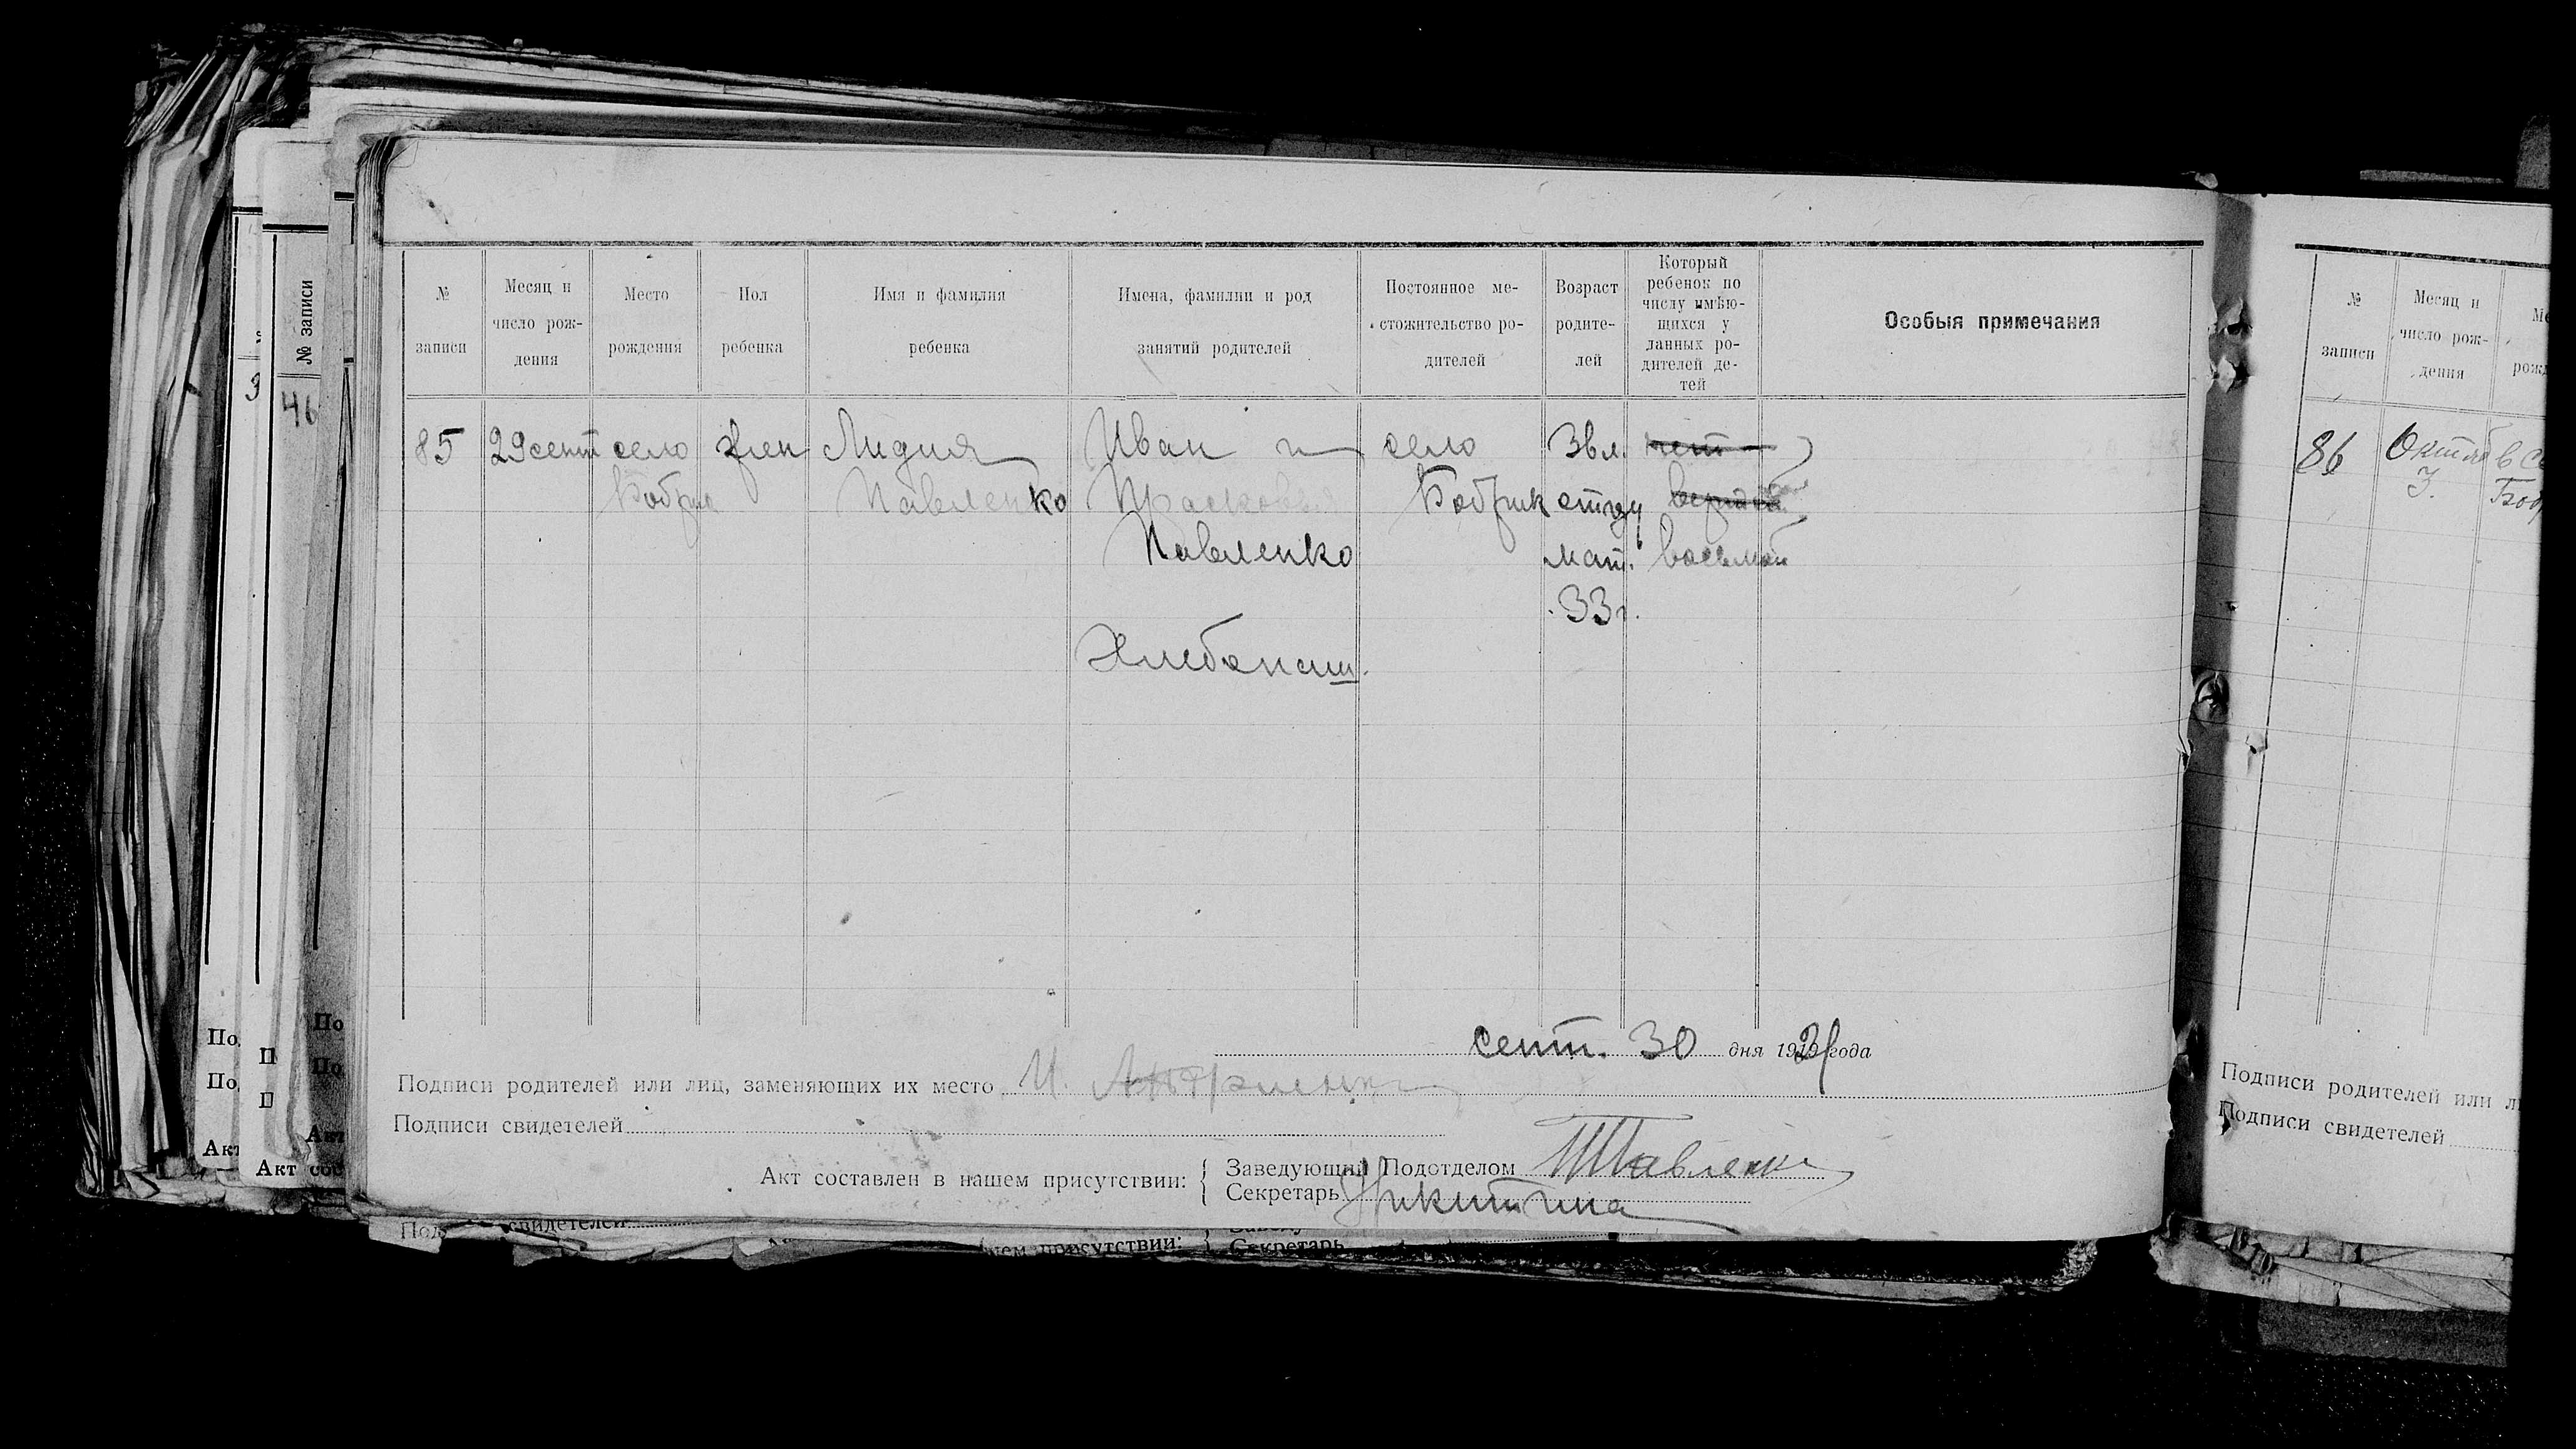 № записи
Месяц и число рождения
Место рождения
Пол ребенка
Имя и фамилия ребенка
Имена, фамилии и род занятий родителей
Постоянное местожительство родителей
Возраст родителей
Который ребенок по числу имѣющихся у данных родителей детей
Особыя примечания
85 29 сент село жен Лидия Иван и село 38 л.
Бобрик Павленко Прасковья Бобрик отцу
Павленко мат. восьмой
33 г.
Хлебопаш.
сент. 30 дня 19 года
Подписи родителей или лиц, заменяющих их место И.
Подписи свидетелей
Акт составлен в нашем присутствии:
Заведующий Подотделом Павленко
Секретарь Никитина
№ записи
46
№ записи
Месяц и число рождения
86 Октяб
3.
Подписи родителей или
Подписи свидетелей
свидетелей
присутствии:
Секретарь